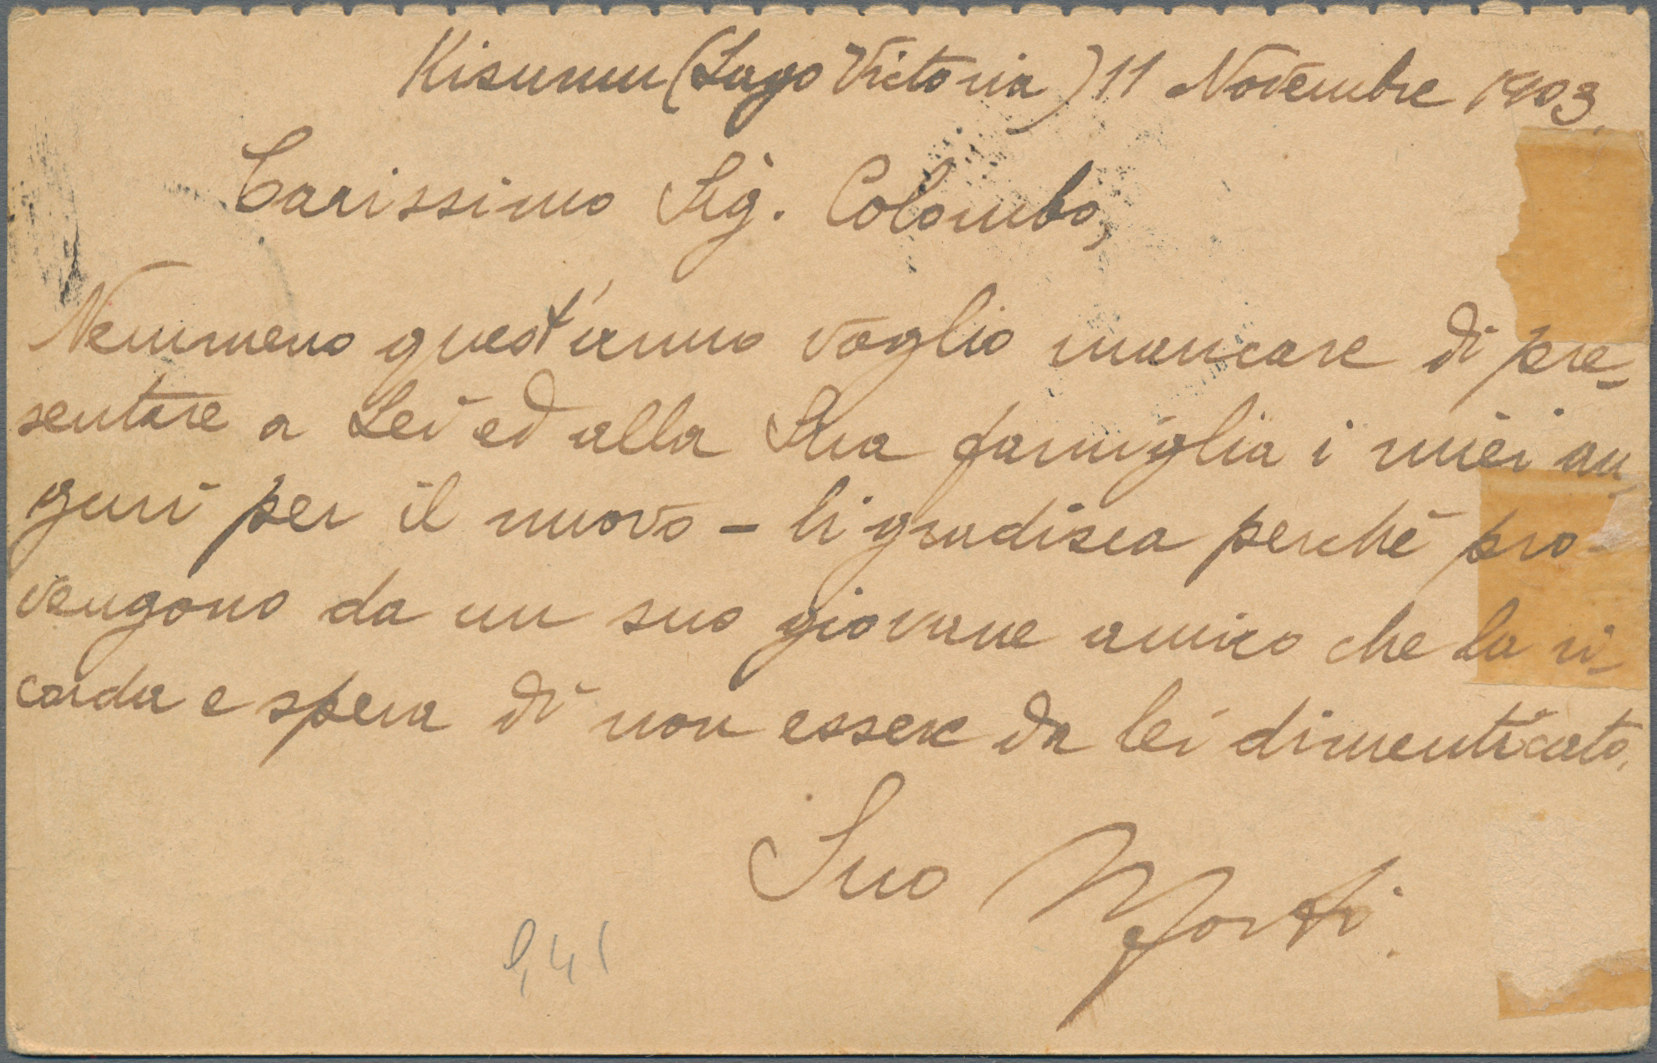 Kisumu (Lago Victoria) 11 Novembre 1903
Carissimo Sig. Colombo,
Nemmeno quest'anno voglio mancare di pre-
sentare a Lei ed alla Sua famiglia i miei au-
guri per il nuovo - li gradisca perchè pro-
vengono da un suo giovane amico che la ri-
corda e spera di non essere da lei dimenticato.
Suo